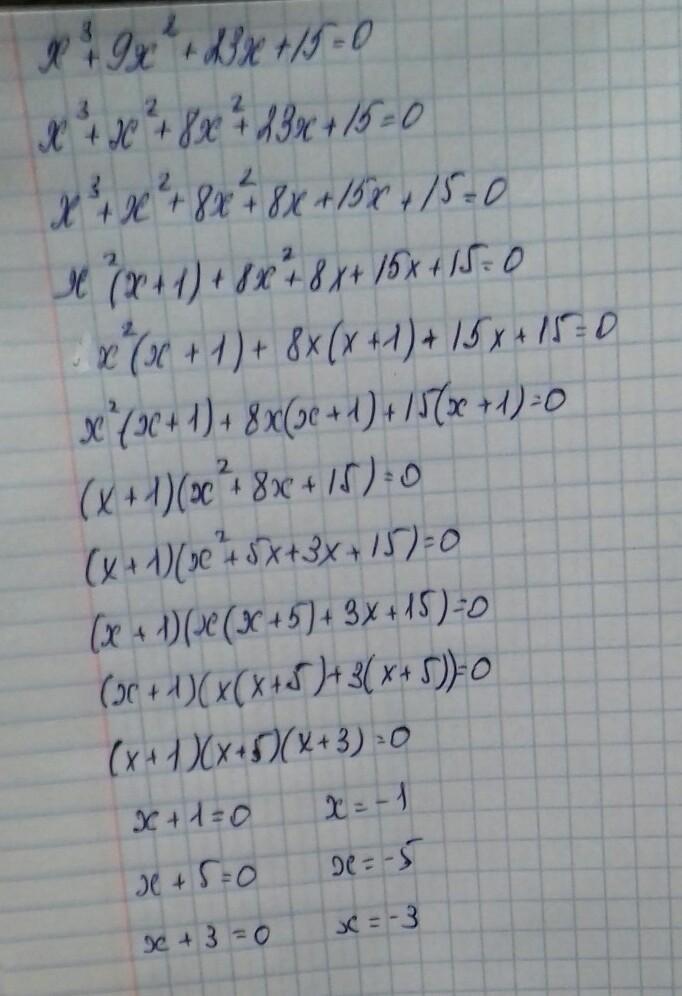 x³+9x²+23x+15=0
x³+x²+8x²+23x+15=0
x³+x²+8x²+8x+15x+15=0
x²(x+1)+8x²+8x+15x+15=0
x²(x+1)+8x(x+1)+15x+15=0
x²(x+1)+8x(x+1)+15(x+1)=0
(x+1)(x²+8x+15)=0
(x+1)(x²+5x+3x+15)=0
(x+1)(x(x+5)+3x+15)=0
(x+1)(x(x+5)+3(x+5))=0
(x+1)(x+5)(x+3)=0
x+1=0 x=-1
x+5=0 x=-5
x+3=0 x=-3